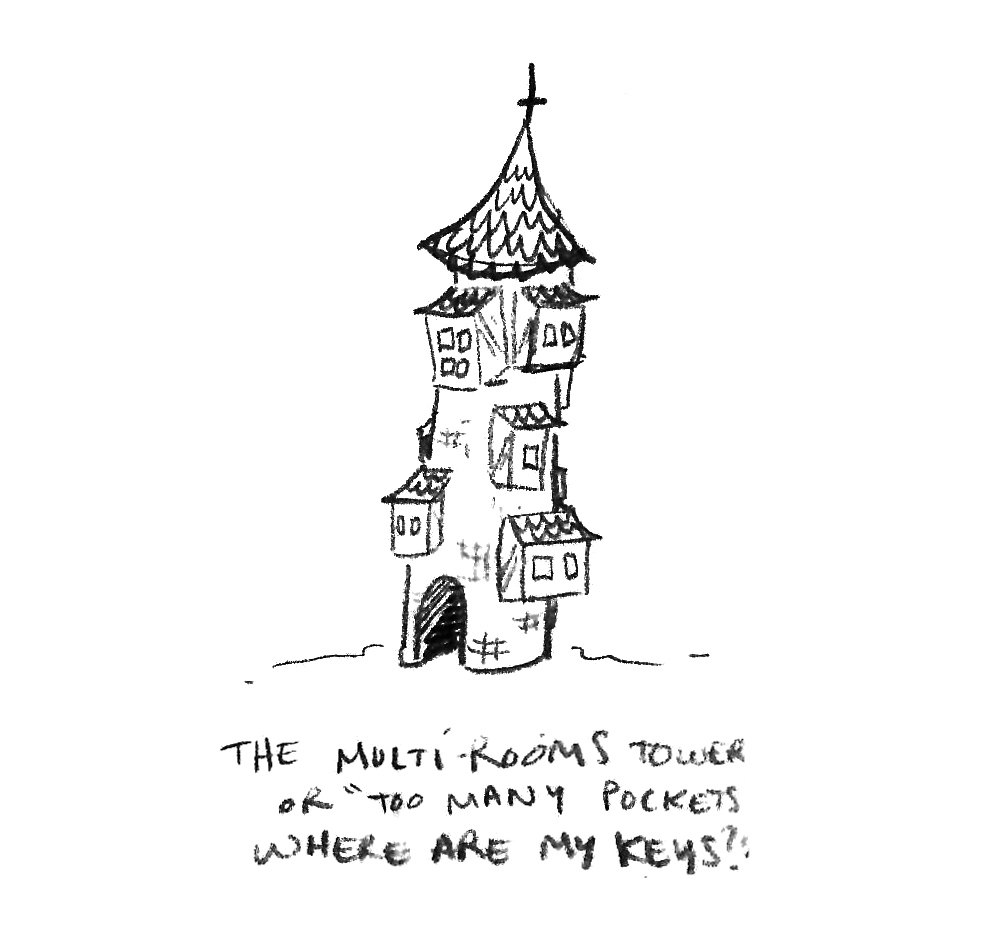 THE MULTI-ROOMS TOWER
OR "TOO MANY POCKETS
WHERE ARE MY KEYS?!